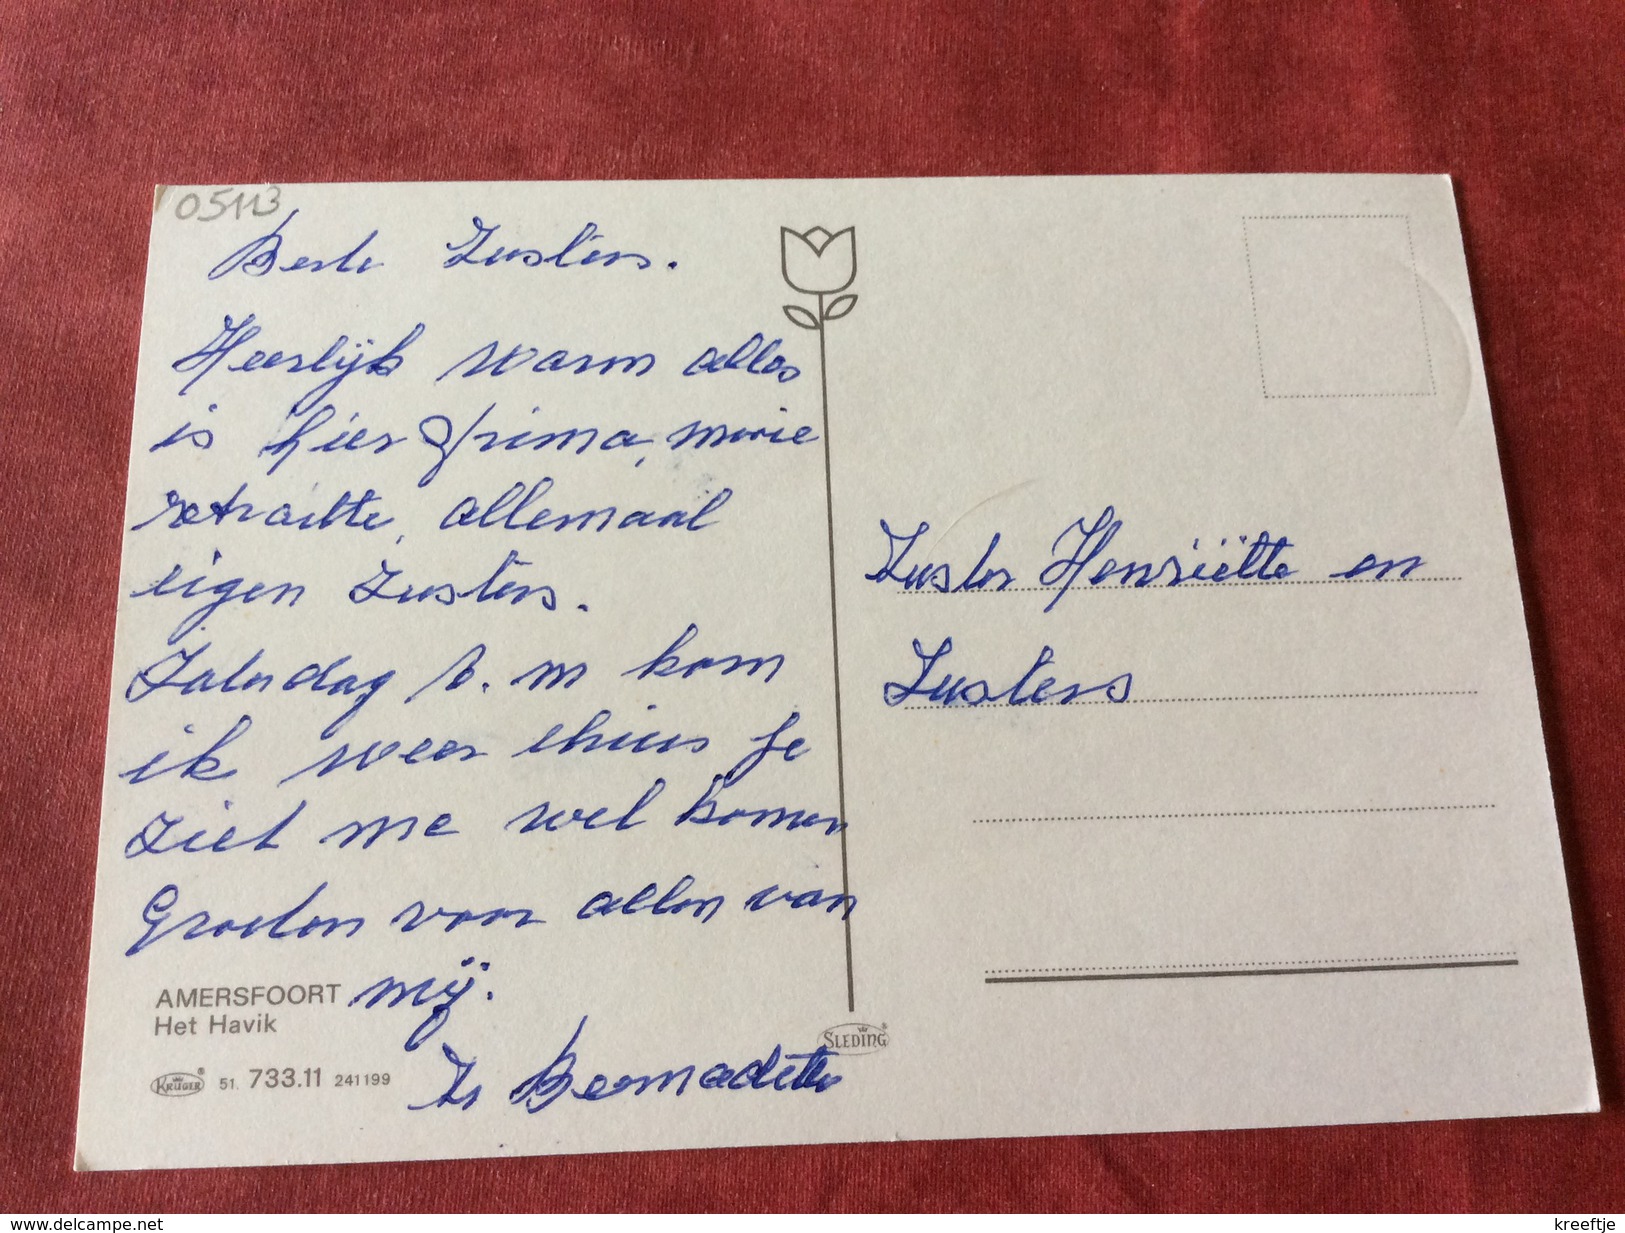 05113
Beste Zusters.
Heerlijk warm alles
is hier prima, mooie
retraitte, allemaal
eigen Zusters.
Zaterdag k.m kom
ik weer thuis je
ziet me wel komen
Groeten voor allen van
mij.
Zr Bernadette
Zuster Henriëtte en
Zusters
AMERSFOORT
Het Havik
KRÜGER® 51. 733.11 241199
SLEDING®
www.delcampe.net
kreeftje